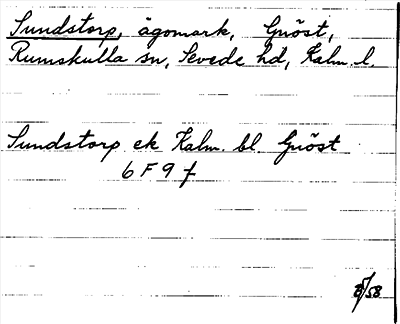 Sundstorp, ägomark, Gnöst,
Rumskulla sn, Sevede hd, Kalm. l.
Sundstorp ek Kalm. bl. Gnöst
6 F 9 f